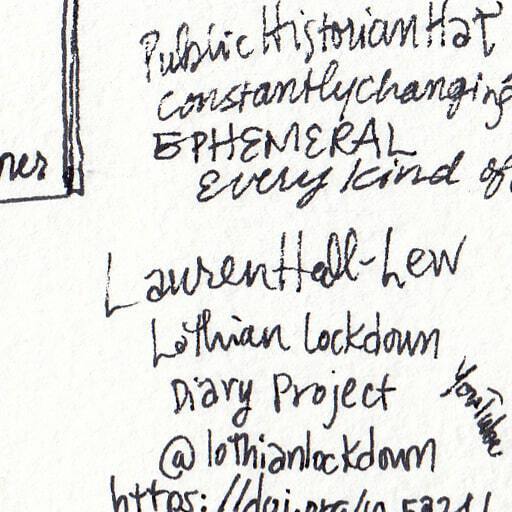 Public Historian Hat
constantly changing
EPHEMERAL
every kind of
ner
Lauren Hall-Lew
Lothian Lockdown
Diary Project
YouTube
@lothianlockdown
https://doi.org/10.5324/